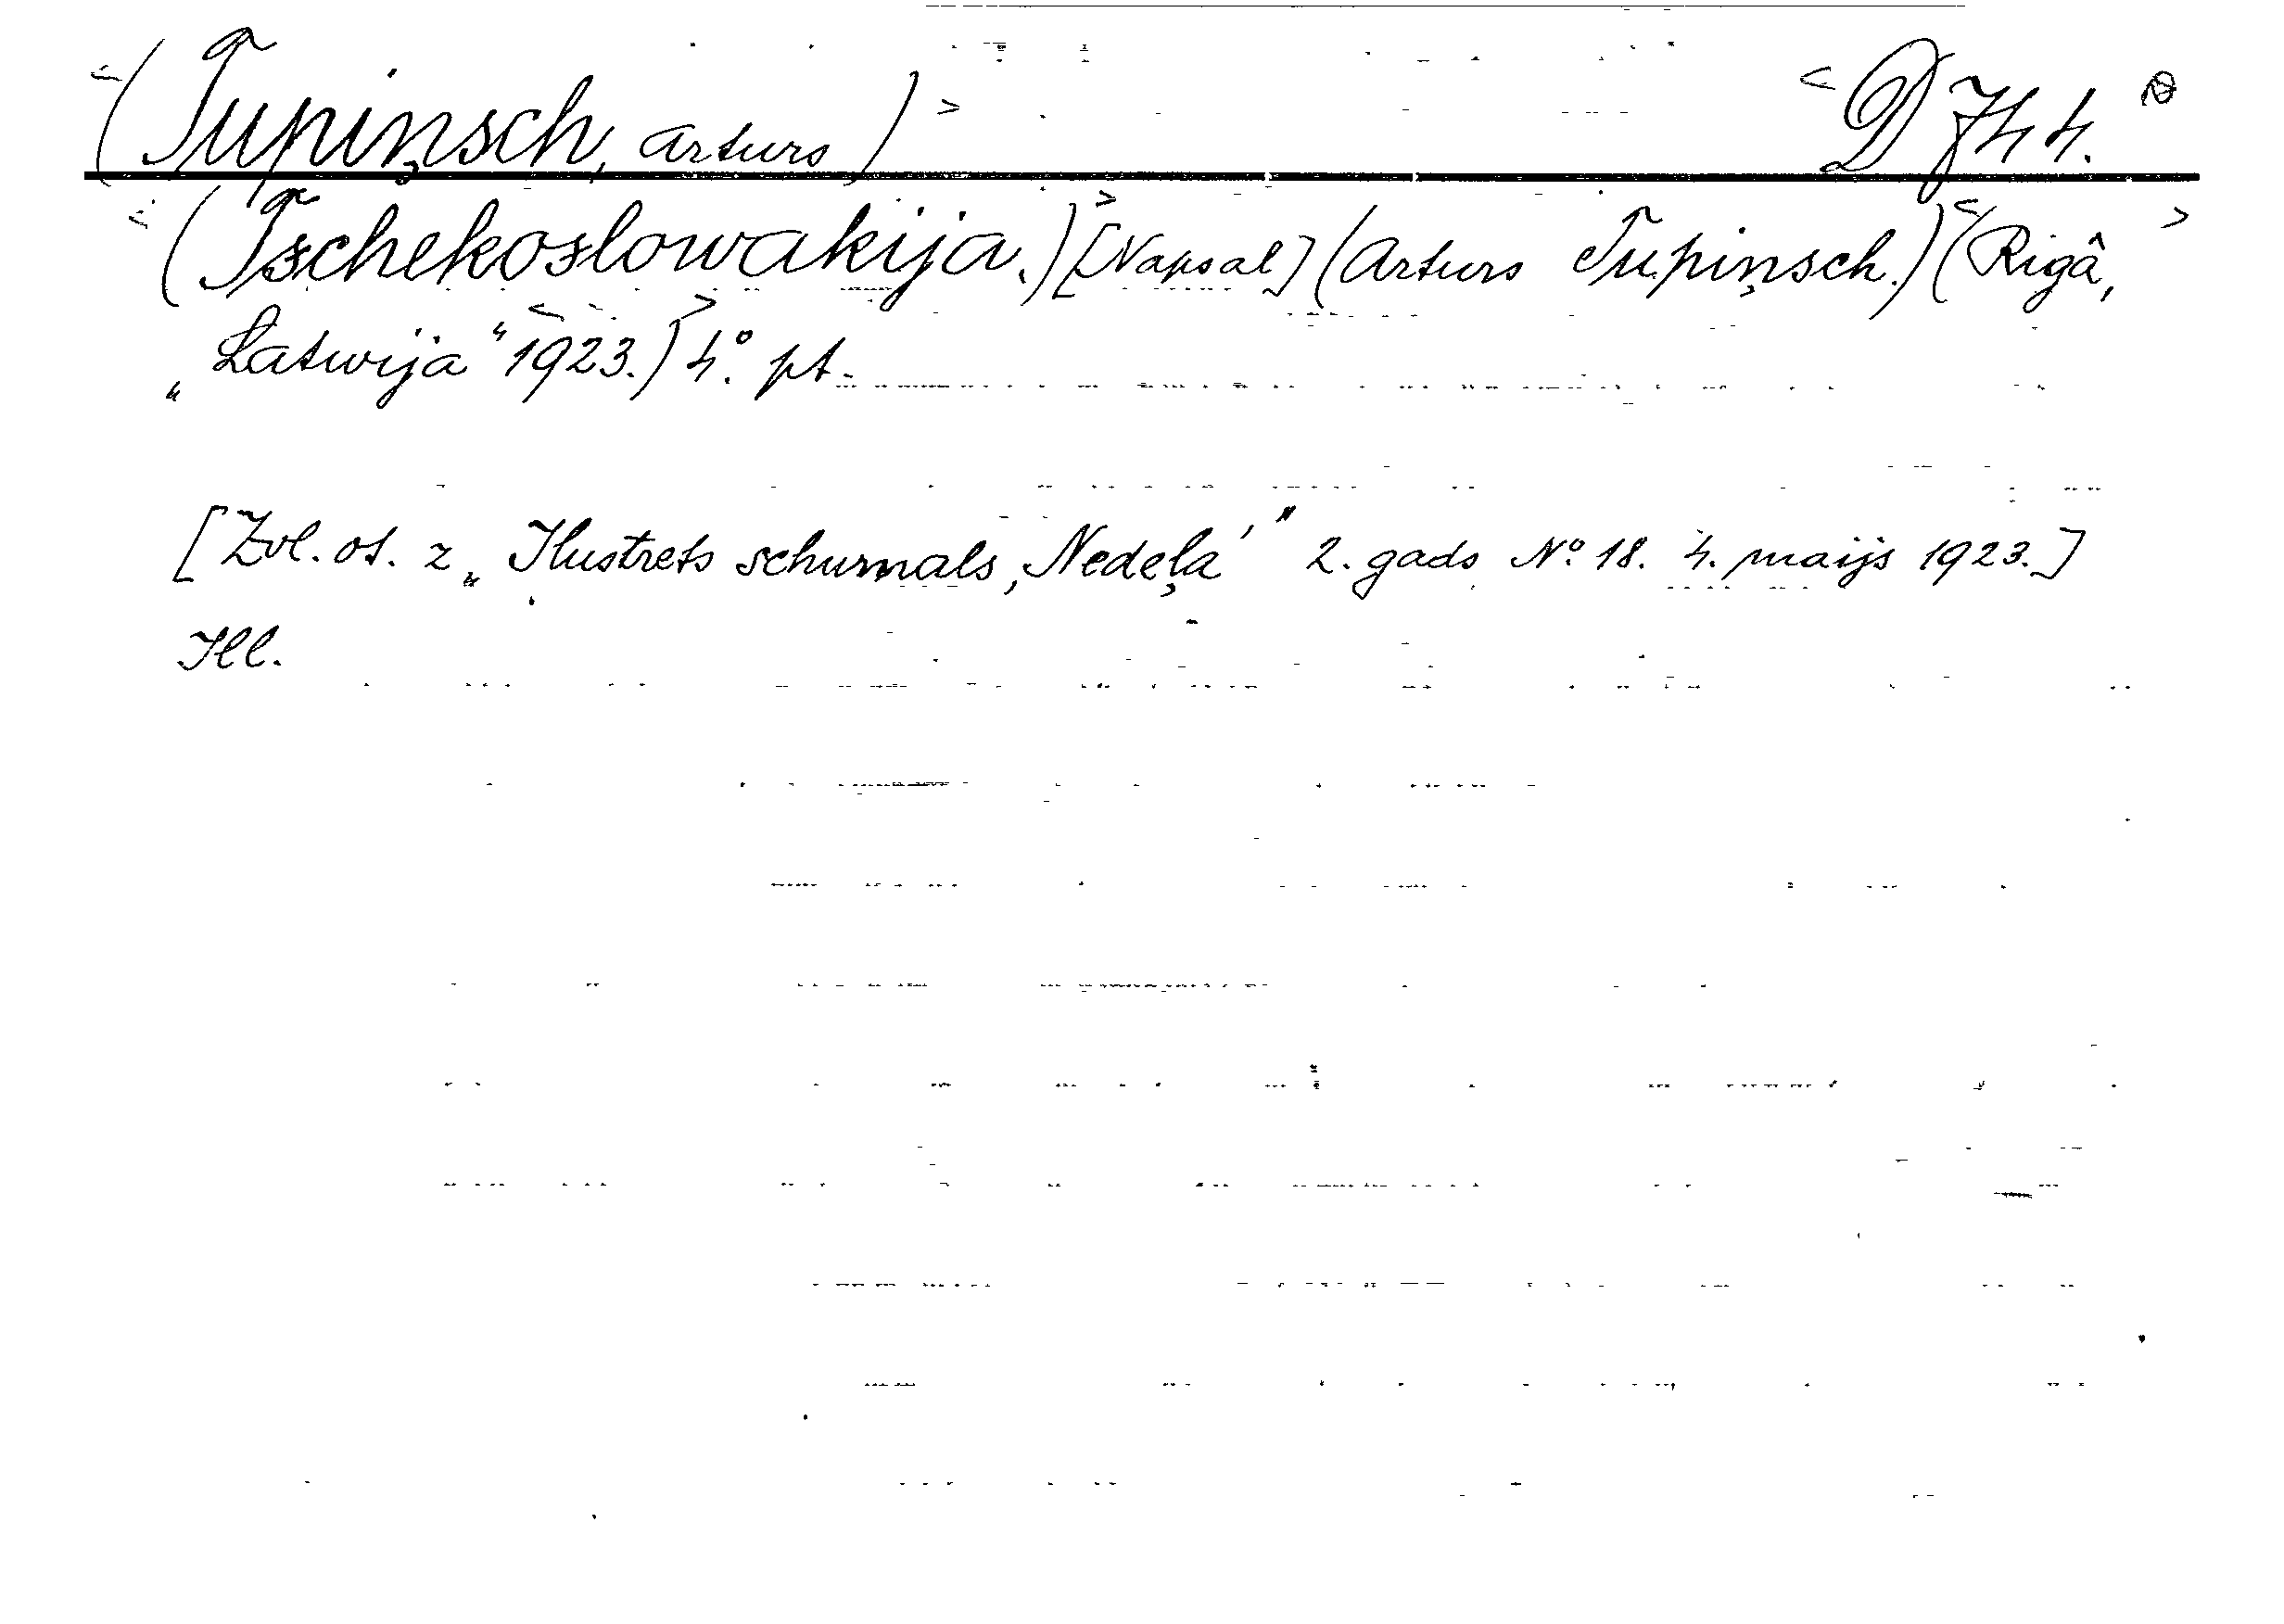 <(Tupiņsch, Arturs)> <D 744.
<(Tschekoslowakija.)> [Napsal] (Arturs Tupiņsch.) <(Rigâ,>
„Latwija“ <1923.)> 4° pt.
[Zvl. ot. z „Ilustrets schurnals ‚Nedeļa‘“ 2. gads No 18. 4. maijs 1923.]
Ill.